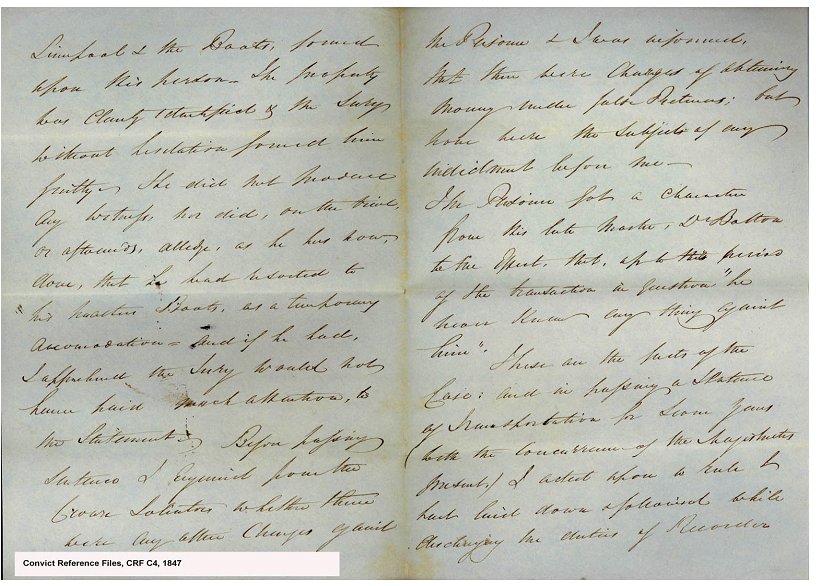 Liverpool & the Boots, found
upon his person – The property
was clearly identified & the Jury
without hesitation found him
guilty – He did not produce
any witness, nor did, on the trial,
or afterwards, alledge, as he has now,
done, that he had resorted to
"his masters Boots, as a temporary
accomodation" – and if he had,
I apprehend the Jury would not
have paid much attention, to
the Statement – Before passing
Sentence I enquired from the
Crown Solicitors whether there
were any other Charges against
the Prisoner & I was informed,
that there were Charges of obtaining
money under false Pretences; but
none were the subjects of any
Indictment before me –
The Prisoner got a character
from his late Master, Dr Batton
to the Effect, that, up to the period
of the transaction in question "he
never knew any thing against
him". These are the facts of the
Case: and in passing a Sentence
of Transportation for Seven Years
(with the concurrence of the Magistrates
present) I acted upon a rule I
had laid down & followed while
discharging the duties of Recorder
Convict Reference Files, CRF C4, 1847